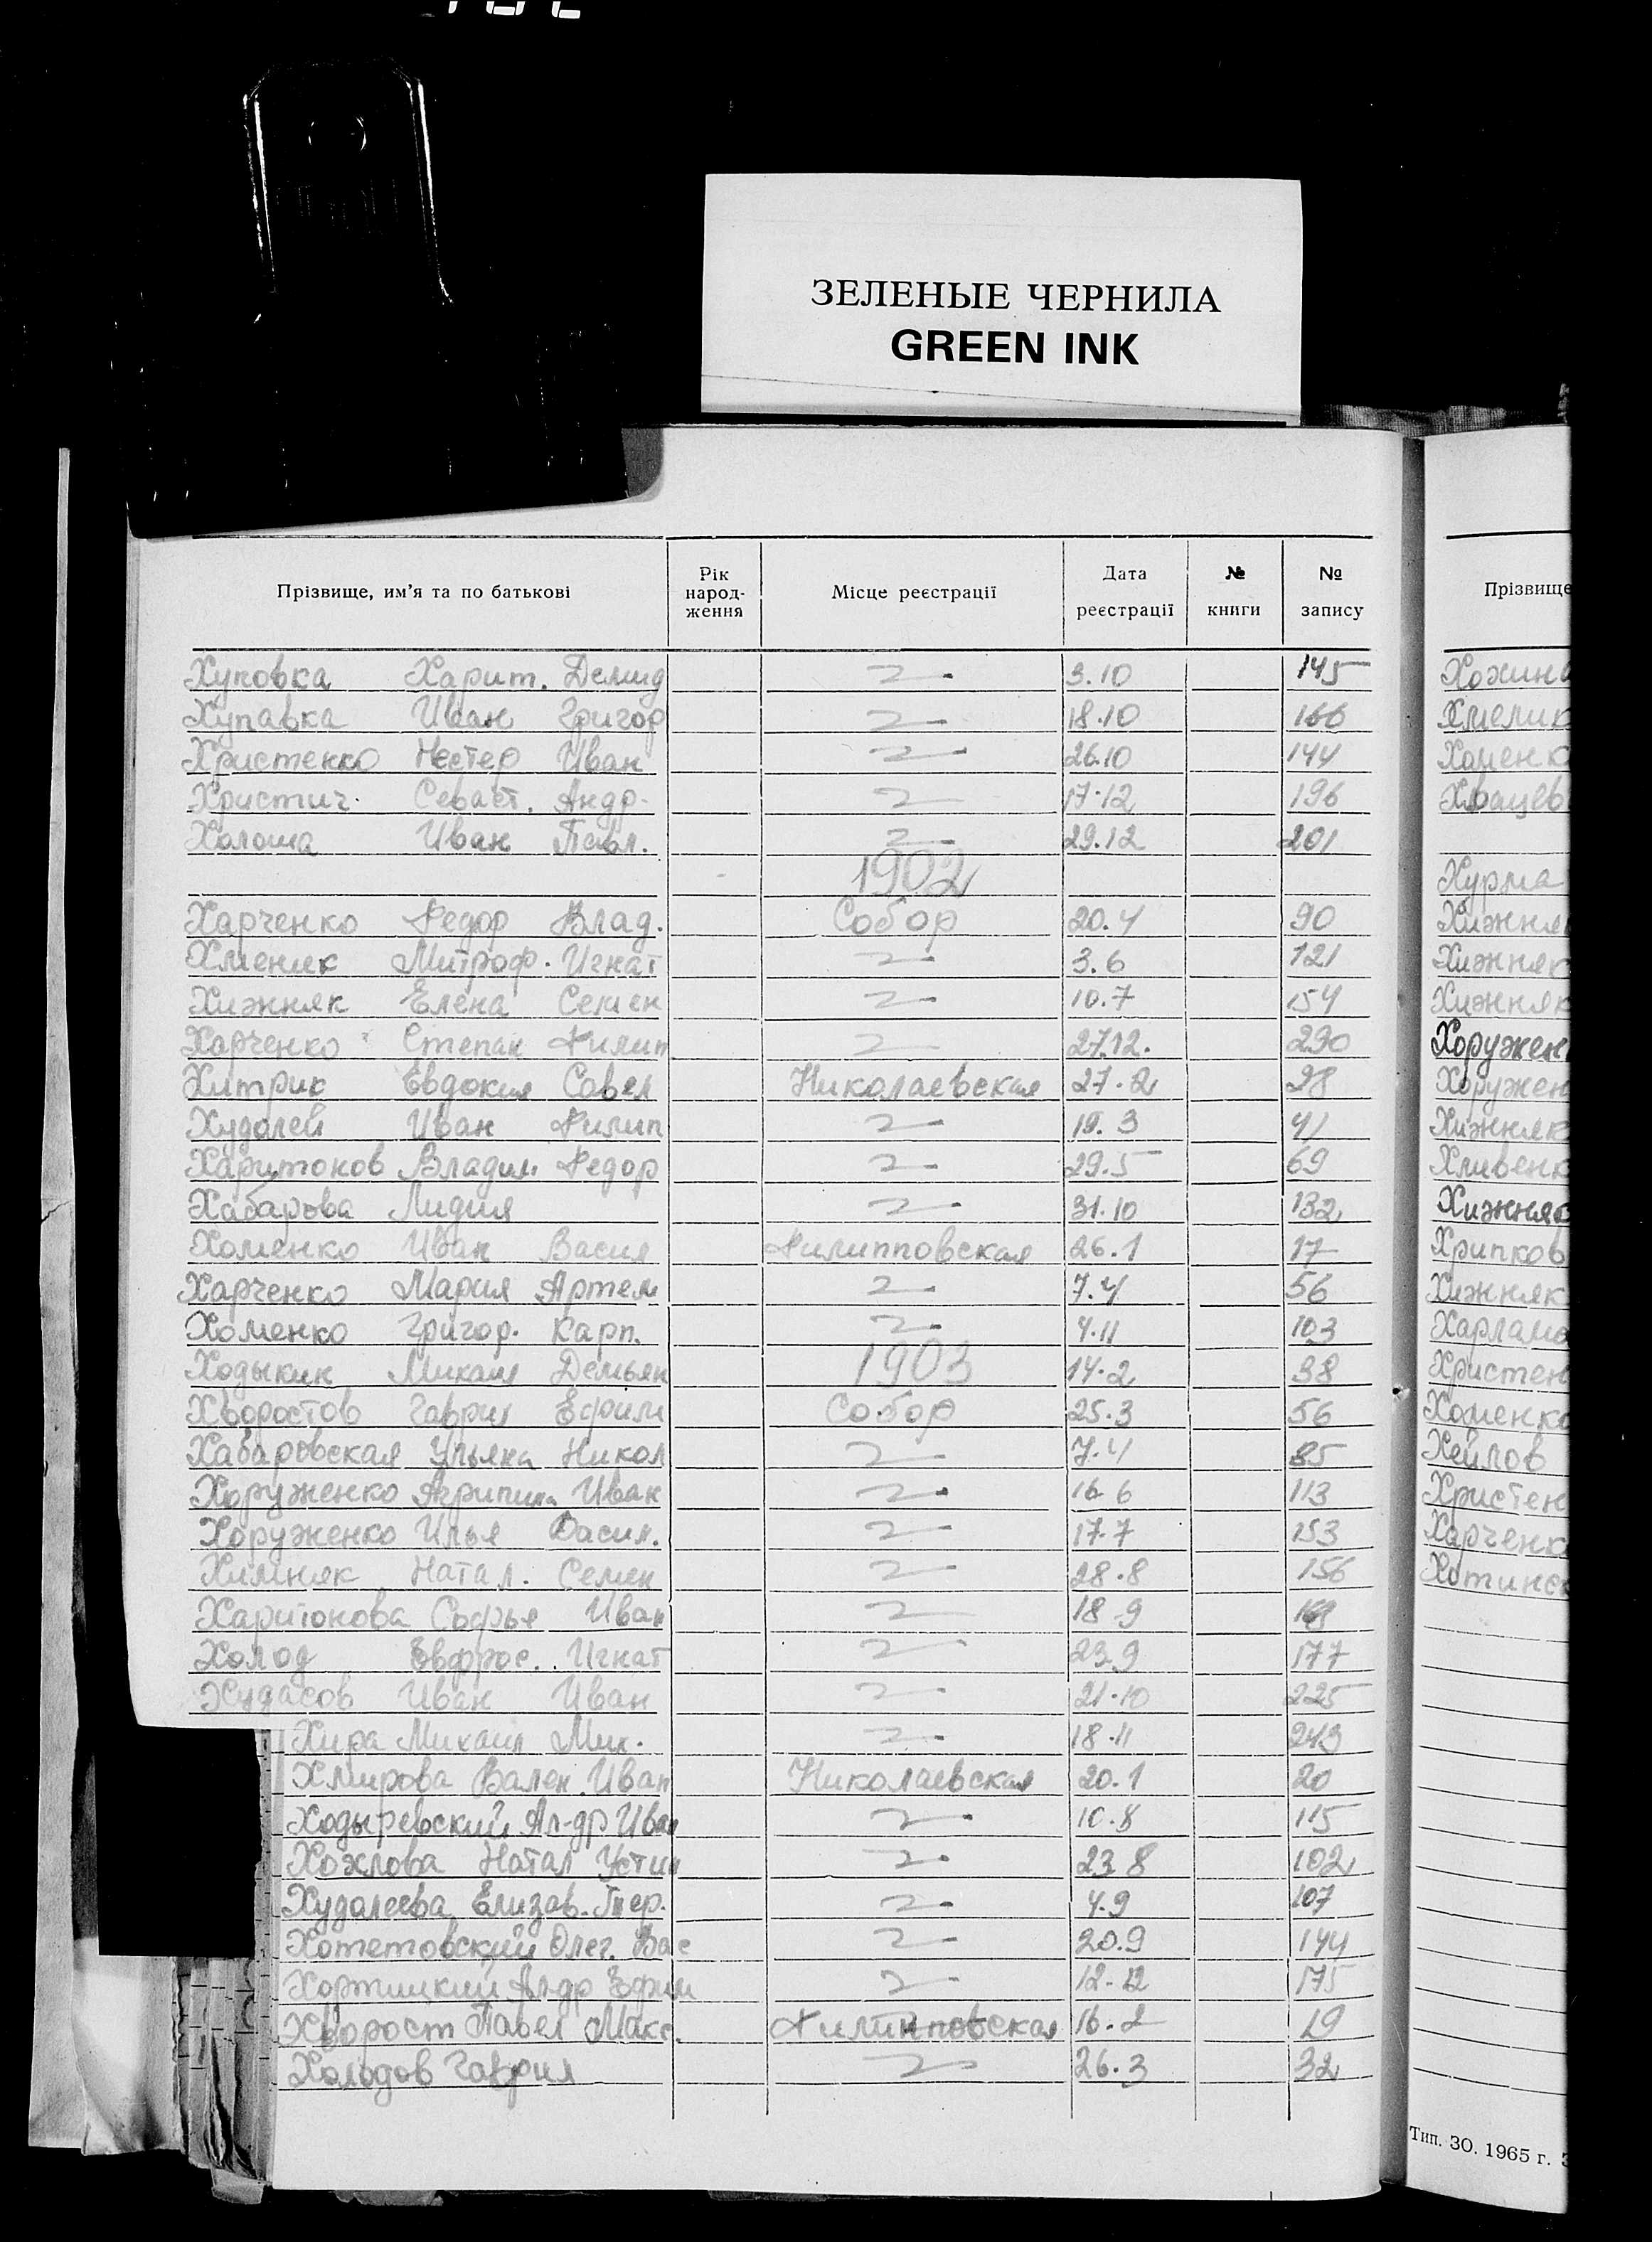 ЗЕЛЕНЫЕ ЧЕРНИЛА
GREEN INK
Прізвище, им'я та по батькові Рік народ- ження Місце реєстрації Дата реєстрації № книги № запису
Хуповка Харит. Демид 3.10 145
Хупавка Иван Григор 18.10 166
Христенко Нестер Иван 26.10 144
Христич. Севаст. Андр. 17.12 196
Холоша Иван Павл. 29.12 201
1902
Харченко Федор Влад. Собор 20.4 90
Хменяк Митроф. Игнат 3.6 121
Хижняк Елена Семен 10.7 154
Харченко Степан Филип 27.12. 290
Хитрик Евдокия Савел Николаевская 27.2 28
Худолей Иван Филип 19.3 41
Харитонов Владим Федор 29.5 69
Хабарова Лидия 31.10 132
Хоменко Иван Васил Филипповская 26.1 17
Харченко Мария Артем 7.4 56
Хоменко Григор. Карп. 4.11 103
Ходыкин Михаил Демьян 1903 14.2 38
Хворостов Гаврил Ефим Собор 25.3 56
Хабаровская Ульяна Никол 7.4 85
Хоруженко Агрипина Иван 16 6 113
Хоруженко Илья Васил. 17.7 153
Химняк Натал. Семен 28.8 156
Харитонова Софья Иван 18.9
Холод Евфрос. Игнат 23.9 177
Худасов Иван Иван 21.10 225
Хира Михаил Мих. 18.11 243
Хмирова Вален. Иван Николаевская 20.1 20
Ходыревский Ал-др Иван 10.8 115
Хохлова Натал Устин 23 8 102
Худолеева Елизав. Тер. 4.9 107
Хотетовский Олег. Вас 20.9 144
Хортицкий Ал-др Ефим 12.12 175
Хворост Павел Макс. Филипповская 16.2 19
Холодов Гаврил 26.3 32
Прізвище
Хожина
Хмелик
Хоменк
Хурма
Хижняк
Хижняк
Хижняк
Хоружен
Хоружен
Хижняк
Хливенк
Хижняк
Хрипков
Хижняк
Харламо
Христен
Хоменко
Хейлов
Христен
Харченк
Хотинс
Тип. ЗО. 1965 г. З